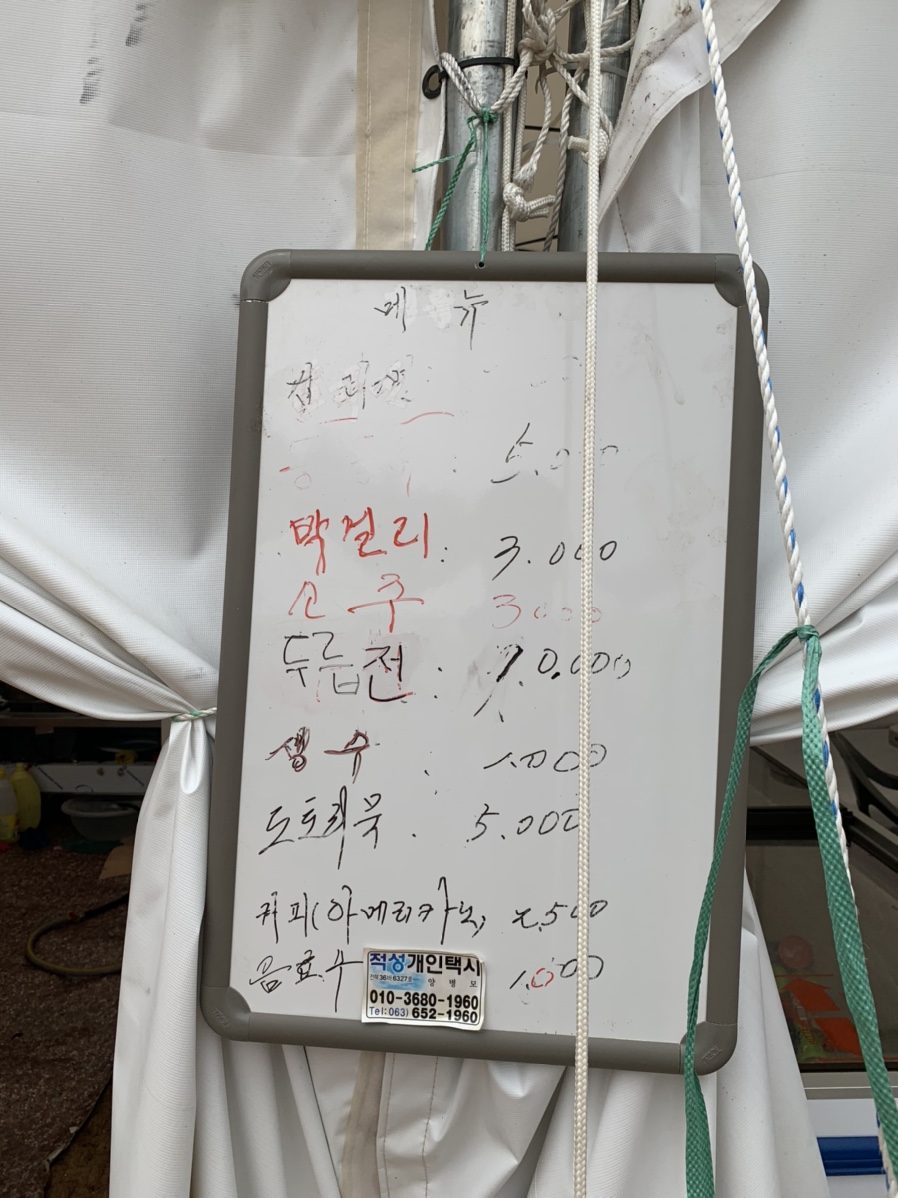 메뉴
5.000
막걸리 : 3.000
소주 3000
두릅전 : 10.000
생수 : 1.000
도토리묵 : 5.000
커피(아메리카노) 2,500
음효수 1.000
적성개인택시
전북36바6327호 양병모
010-3680-1960
Tel:063) 652-1960